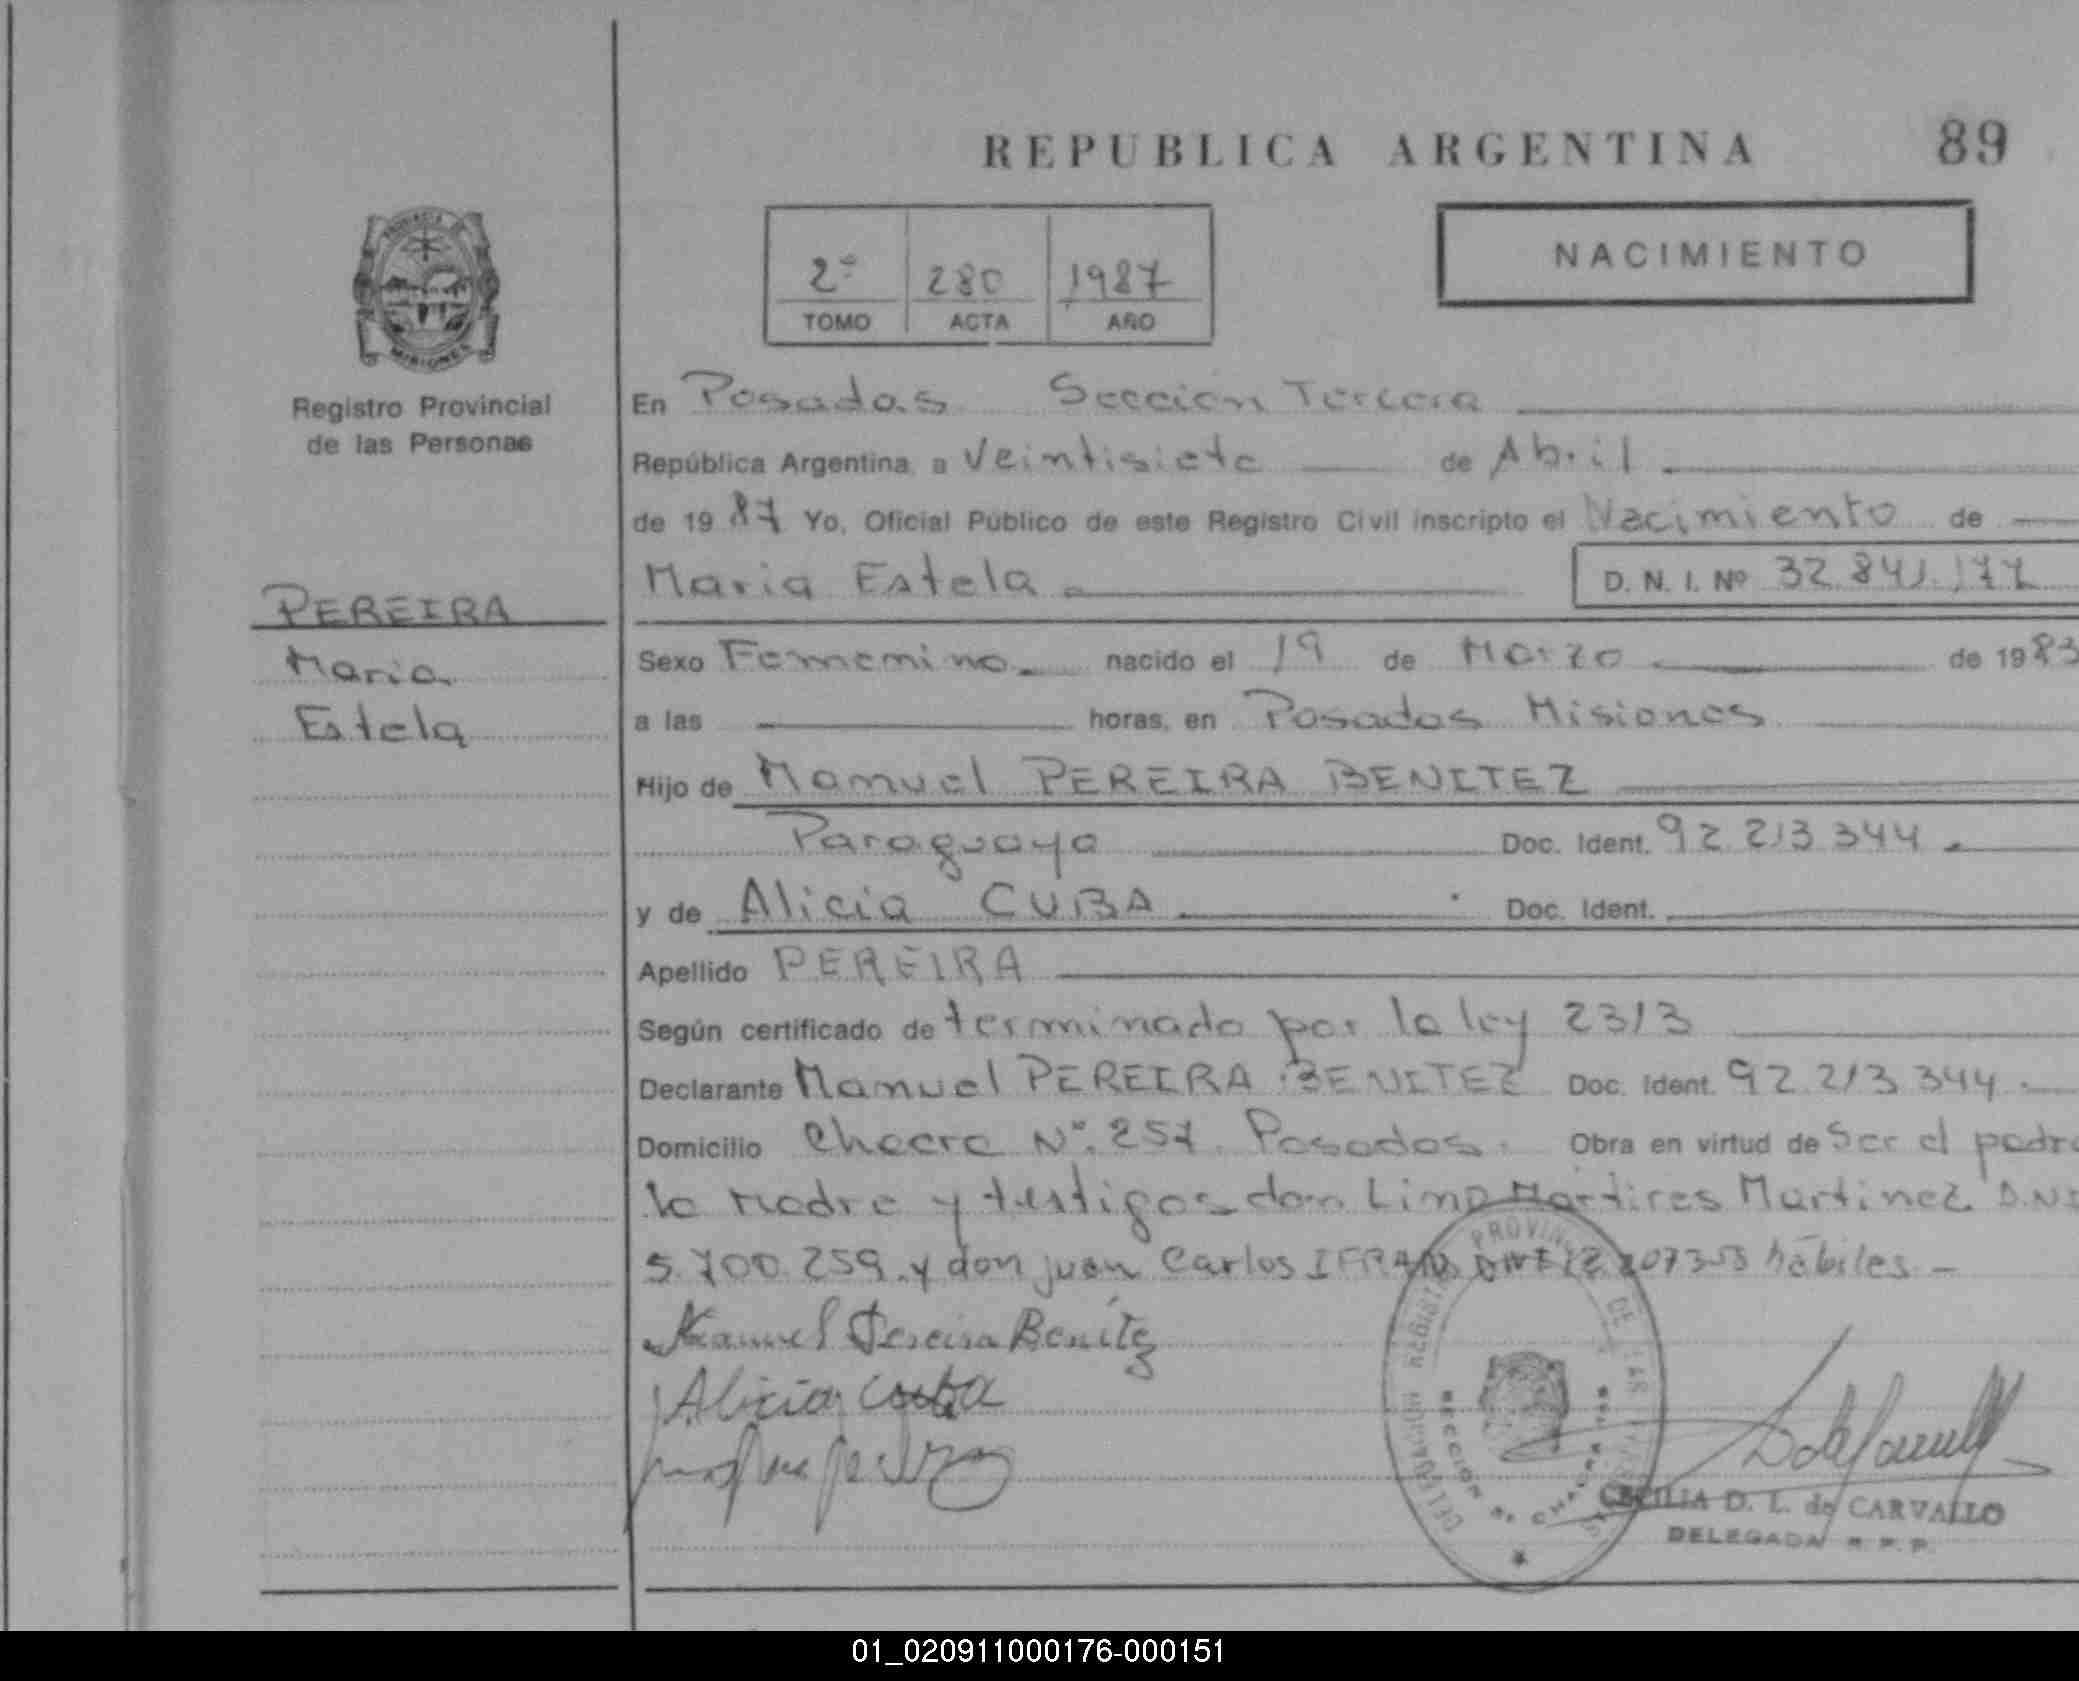 REPUBLICA ARGENTINA 89
NACIMIENTO
2º 280 1987
TOMO ACTA AÑO
MISIONES
Registro Provincial
de las Personas
En Posadas Sección Tercera
República Argentina, a Veintisiete de Abril
de 19 87 Yo, Oficial Público de este Registro Civil inscripto el Nacimiento de
Maria Estela D. N. I. Nº
PEREIRA
Maria
Estela
Sexo Femenino nacido el 19 de Marzo de 1983
a las horas, en Posadas Misiones
Hijo de Manuel PEREIRA BENITEZ
Paraguayo Doc. Ident. 92.213.344
y de Alicia CUBA Doc. Ident.
Apellido PEREIRA
Según certificado de terminado por la ley 2313
Declarante Manuel PEREIRA BENITEZ Doc. Ident. 92.213.344
Domicilio Nº 257 Posadas. Obra en virtud de Ser el padre
la Madre y testigos don Martires Martinez D.N.I
5.700.259 y don juan Carlos habiles -
Manuel Pereira Benitez
Alicia Cuba
CECILIA D. L. de CARVALLO
DELEGADA R. P. P.
01_020911000176-000151